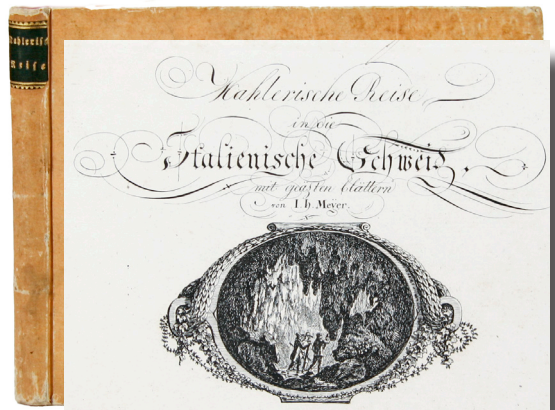 Mahlerisch
Reise
Mahlerische Reise
in die
Italienische Schweiz.
mit geäzten blättern
von I. h. Meyer.